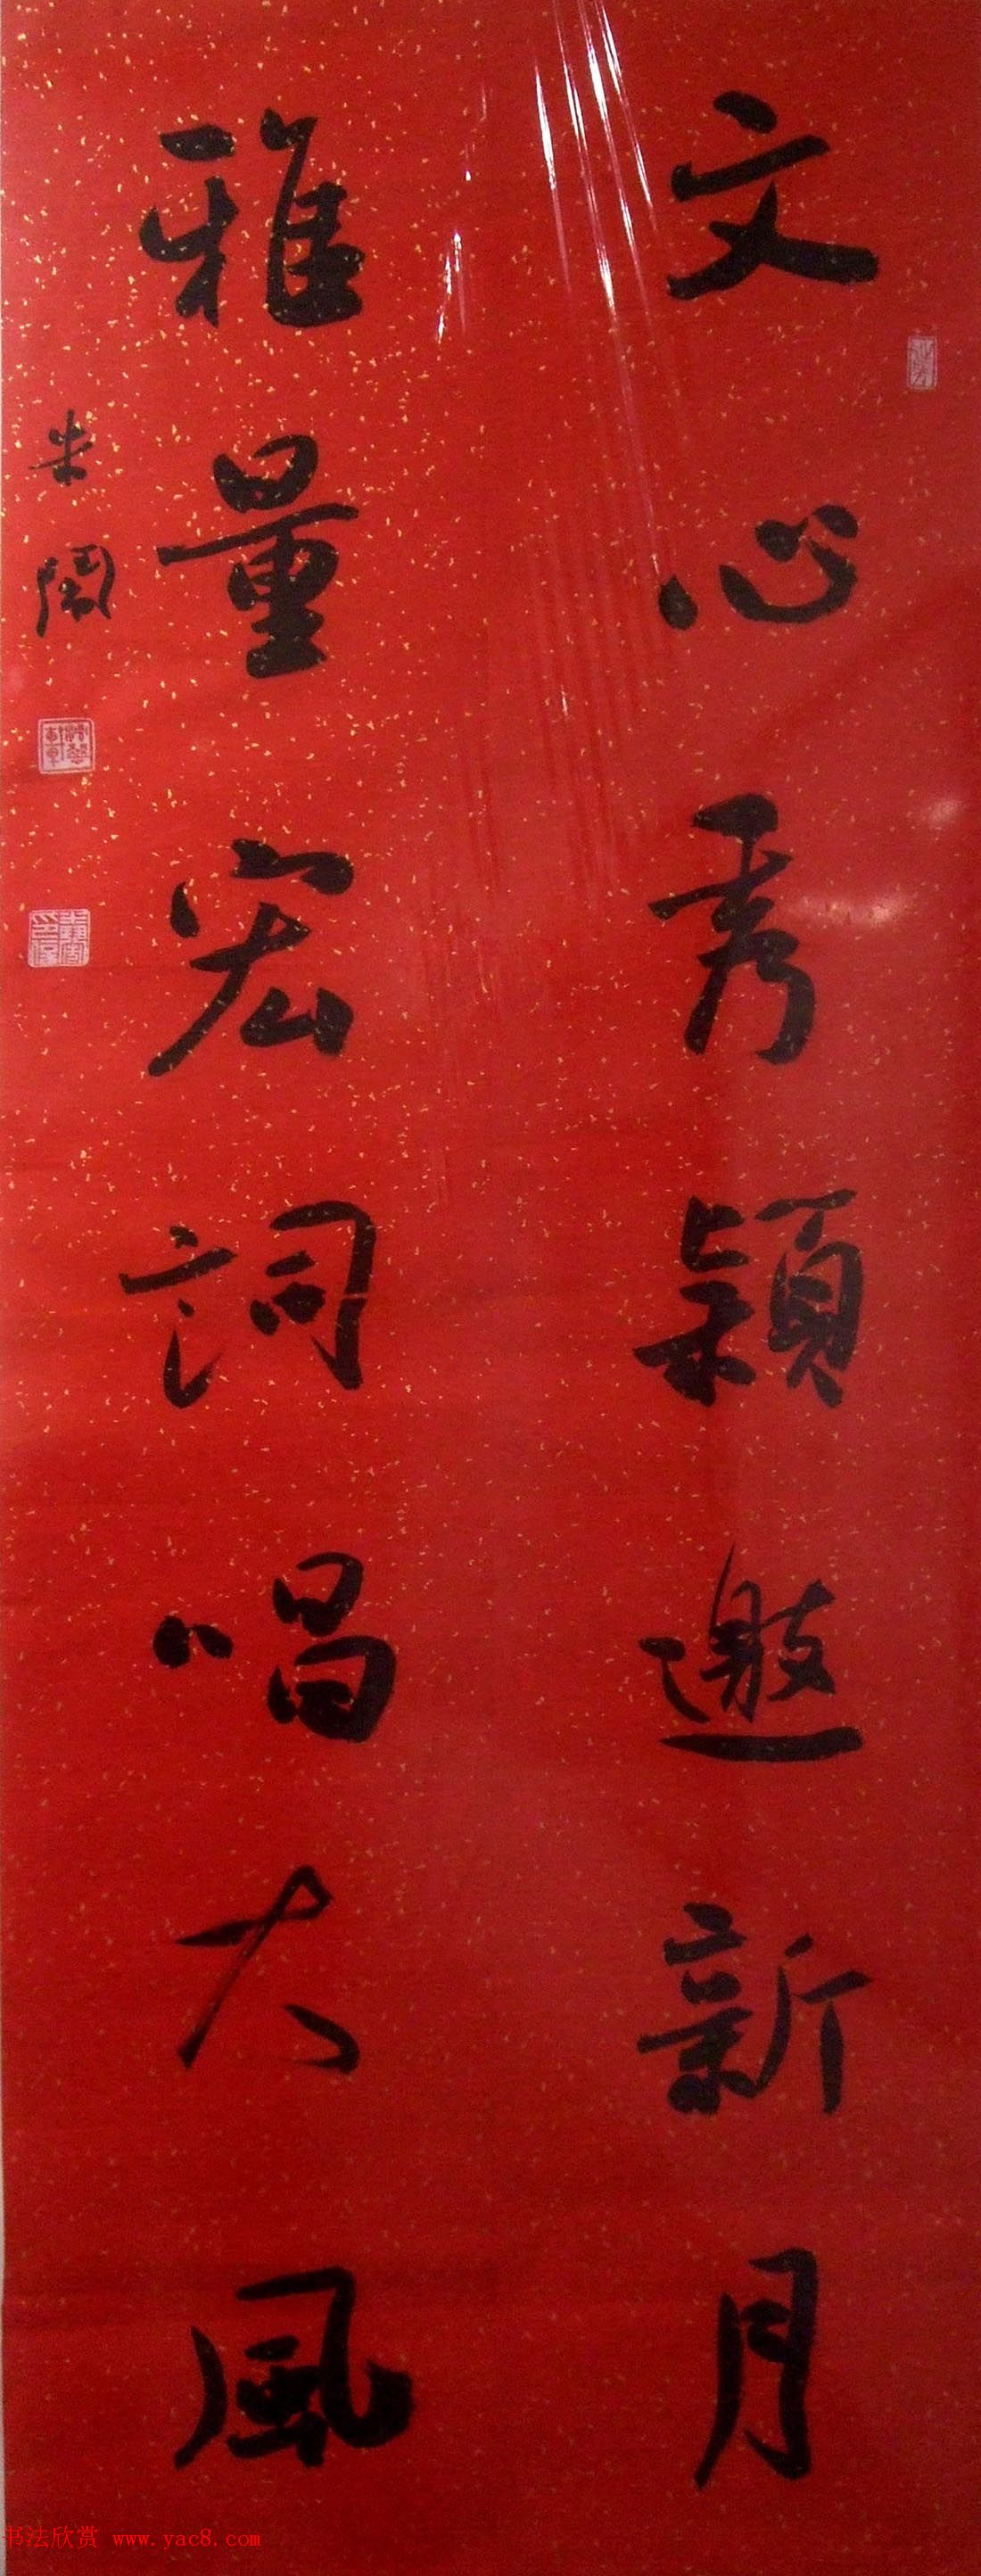 文心秀穎邀新月
雅量宏詞唱大風
书法欣赏 www.yac8.com